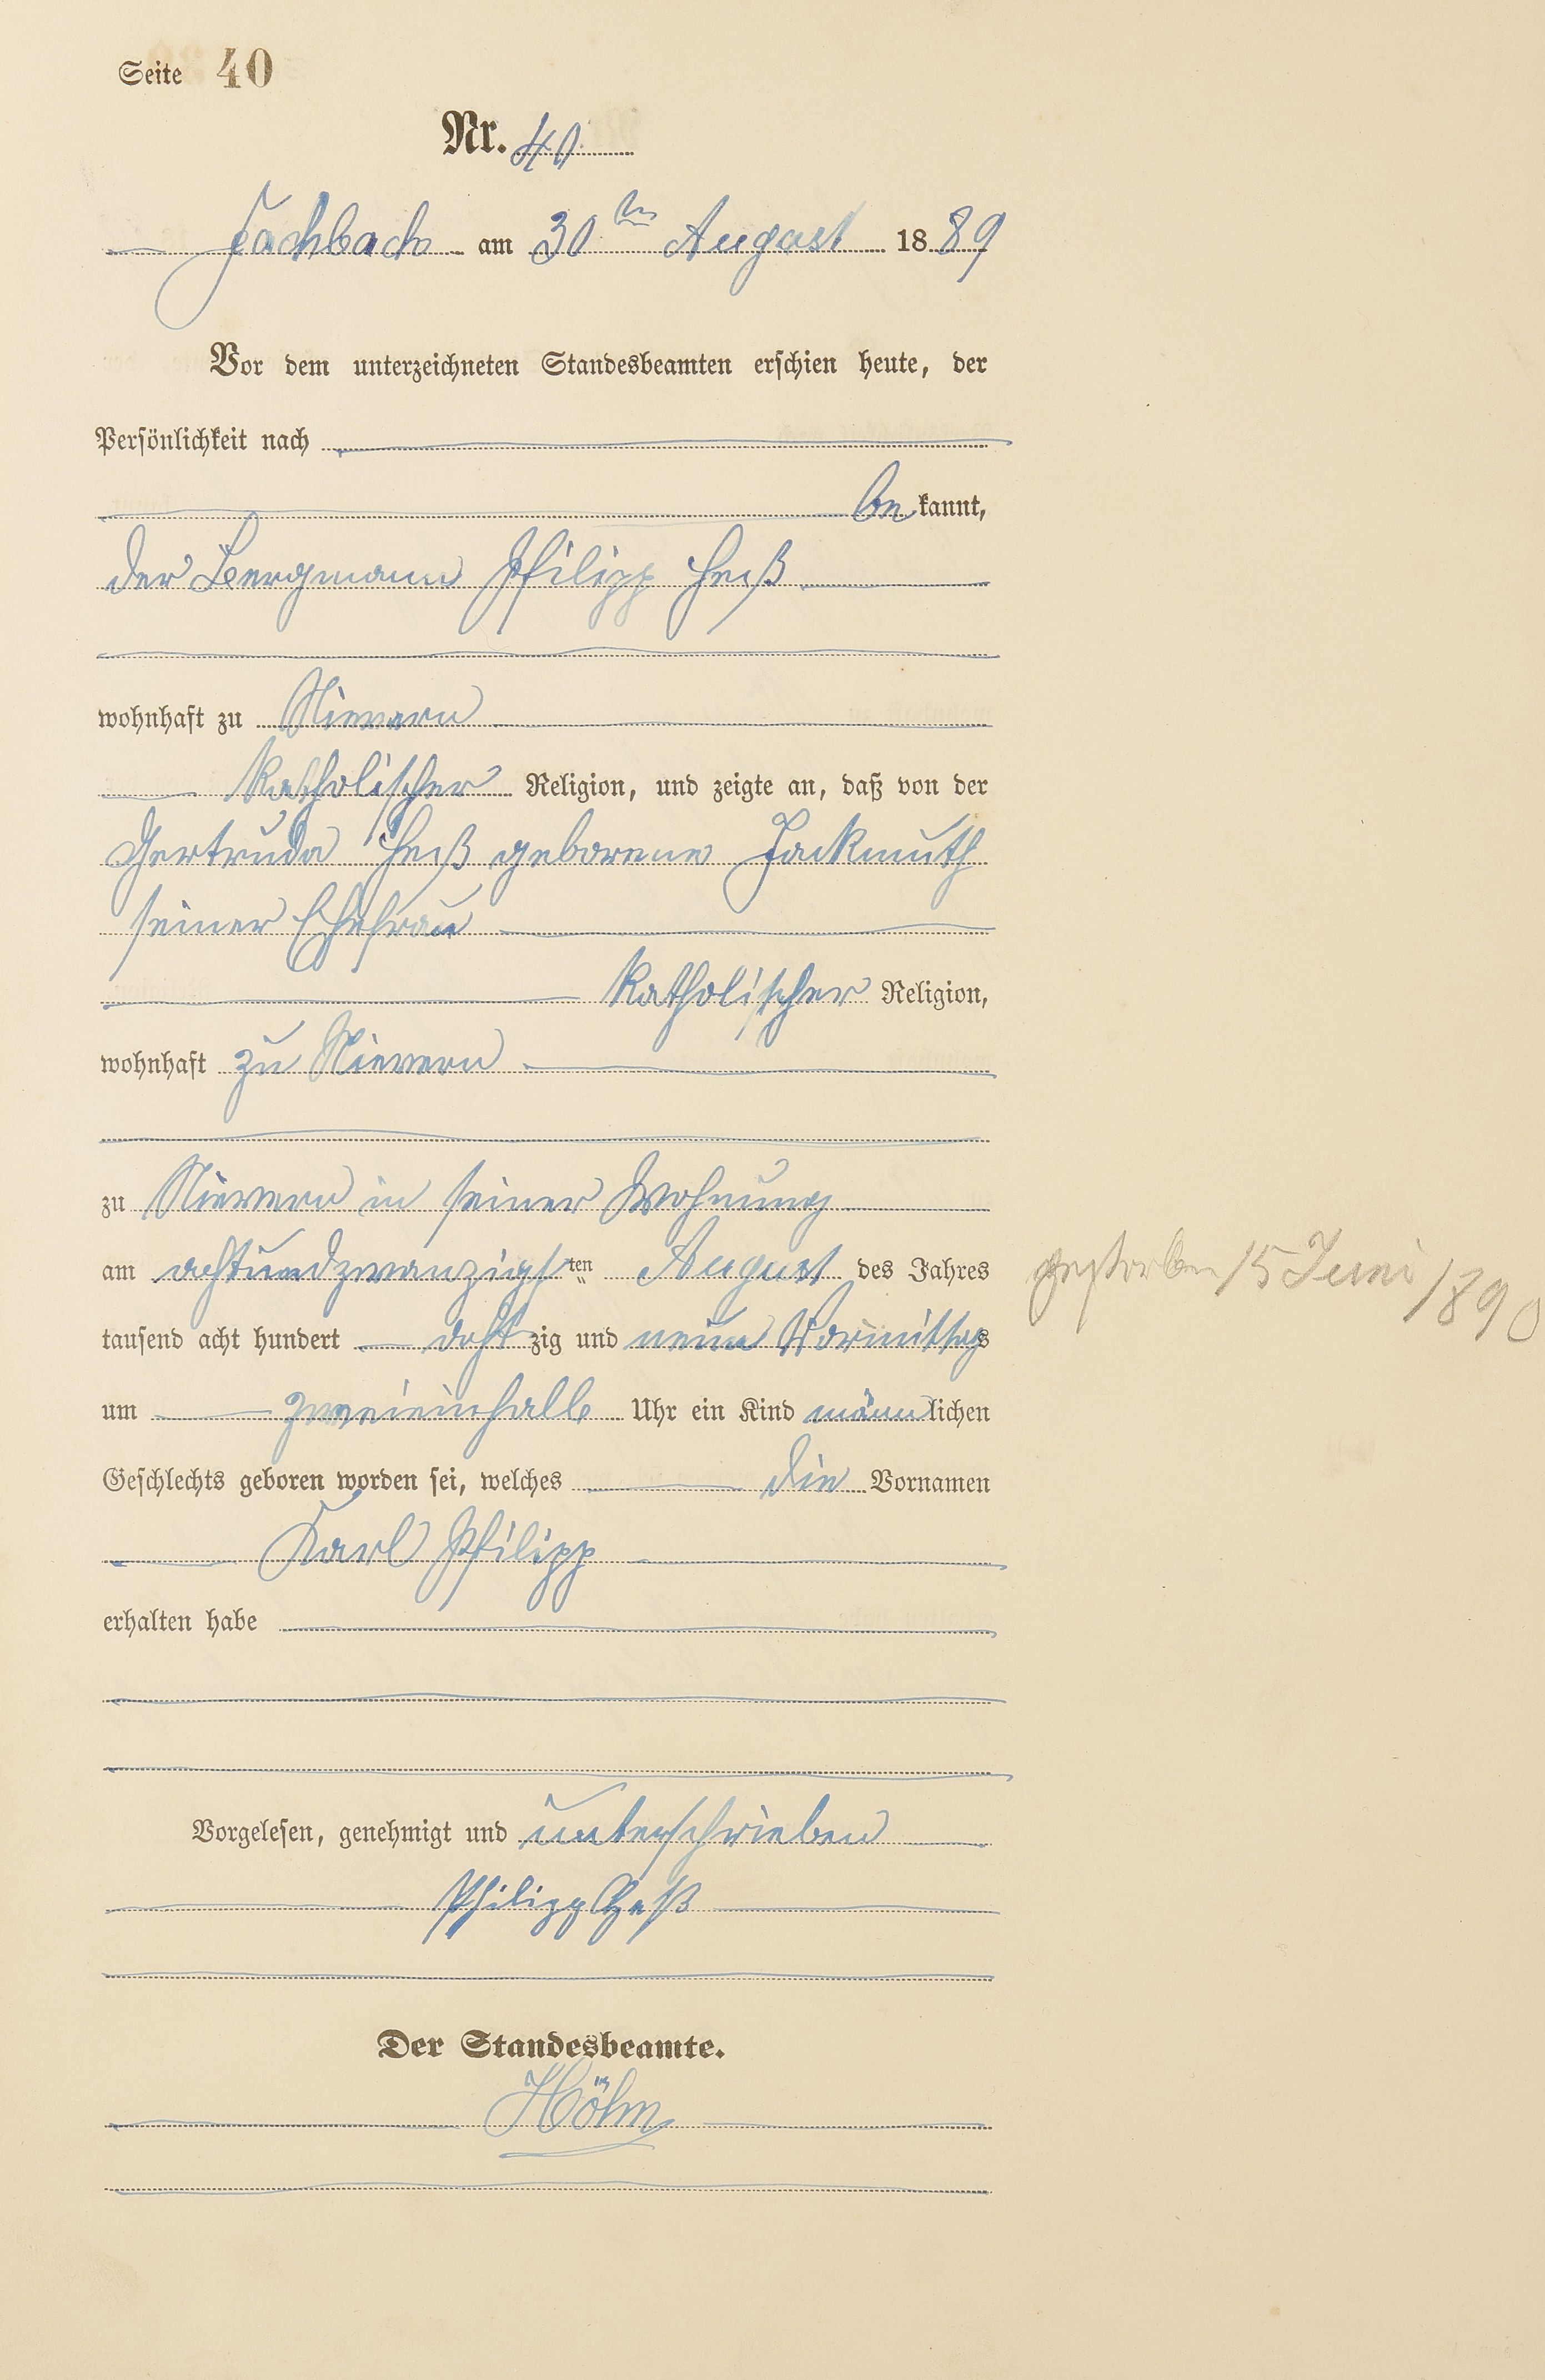 Seite 40
Nr. 40
Fachbach am 30ten August 1889
Vor dem unterzeichneten Standesbeamten erschien heute, der
Persönlichkeit nach
bekannt,
der Bergmann Philipp Heß
wohnhaft zu Nievern
katholischer Religion, und zeigte an, daß von der
Gertruda Heß geborene Jackmuth
seiner Ehefrau
katholischer Religion,
wohnhaft zu Nievern
zu Nievern in seiner Wohnung
am achtundzwanzigsten August des Jahres
tausend acht hundert achtzig und neun Vormittags
um zweieinhalb Uhr ein Kind männlichen
Geschlechts geboren worden sei, welches die Vornamen
Karl Philipp
erhalten habe
Vorgelesen, genehmigt und unterschrieben
Philipp Heß
Der Standesbeamte.
Höhn
gestorben 15 Juni 1890